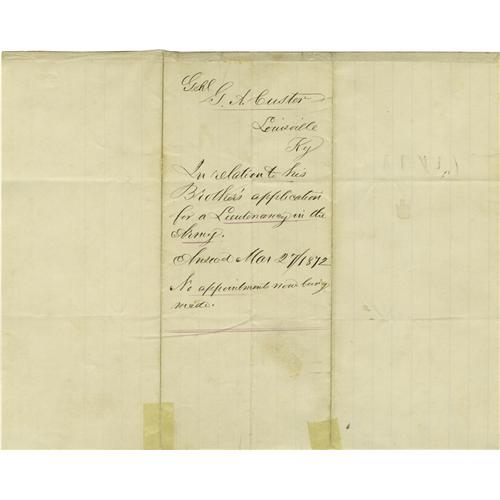 Genl
G. A. Custer
Louisville
Ky
In relation to his
Brother's application
for a Lieutenancy in the
Army.
Answd Mar 27/1872
No appointments now being
made.